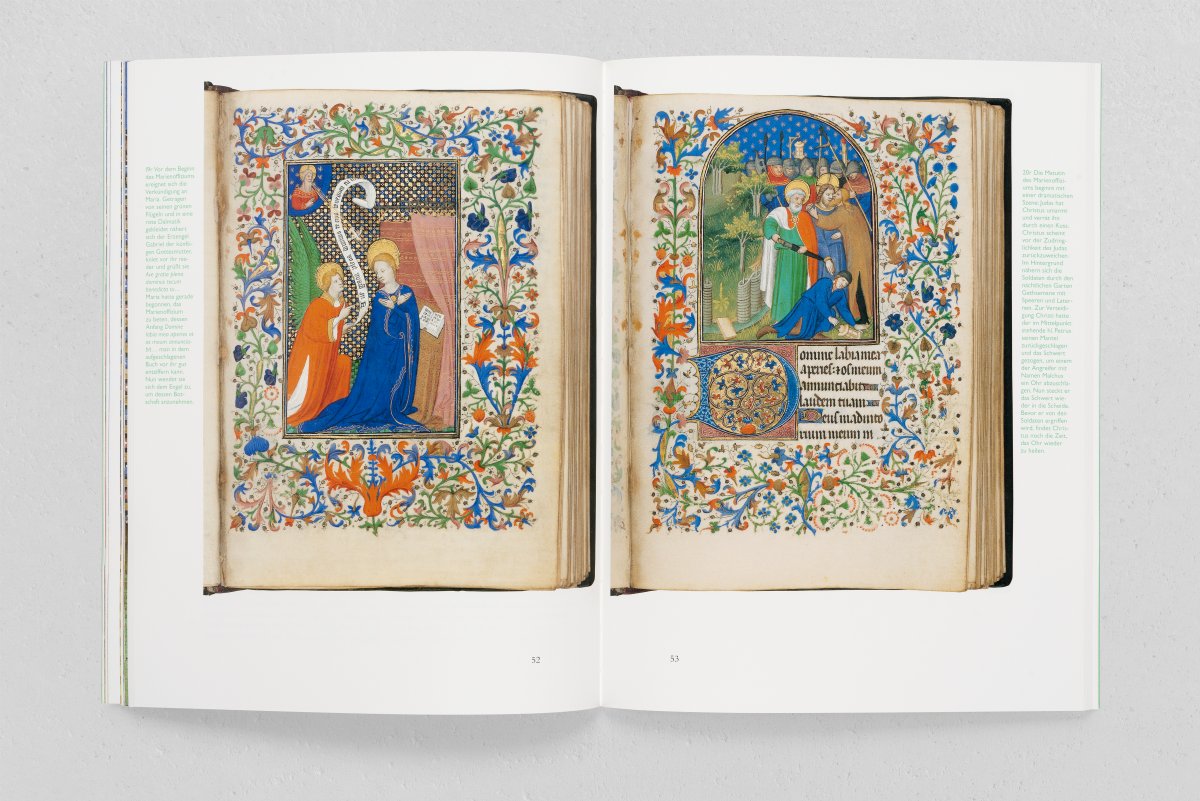 19r Vor dem Beginn
des Marienoffiziums
ereignet sich die
Verkündigung an
Maria. Getragen
von seinen grünen
Flügeln und in eine
rote Dalmatik
gekleidet nähert
sich der Erzengel
Gabriel der künfti-
gen Gottesmutter,
kniet vor ihr nie-
der und grüßt sie
Ave gratia plena
dominus tecum
benedicta tu …
Maria hatte gerade
begonnen, das
Marienoffizium
zu beten, dessen
Anfang Domine
labia mea aperies et
os meum annuncia-
bit … man in dem
aufgeschlagenen
Buch vor ihr gut
entziffern kann.
Nun wendet sie
sich dem Engel zu,
um dessen Bot-
schaft anzunehmen.
52
Domine labia mea
aperies: et os meum
annunciabit
laudem tuam
Deus in adiuto
rium meum in
20r Die Matutin
des Marienoffizi-
ums beginnt mit
einer dramatischen
Szene: Judas hat
Christus umarmt
und verrät ihn
durch einen Kuss.
Christus scheint
vor der Zudring-
lichkeit des Judas
zurückzuweichen.
Im Hintergrund
nähern sich die
Soldaten durch den
nächtlichen Garten
Gethsemane mit
Speeren und Later-
nen. Zur Verteidi-
gung Christi hatte
der im Mittelpunkt
stehende hl. Petrus
seinen Mantel
zurückgeschlagen
und das Schwert
gezogen, um einem
der Angreifer mit
Namen Malchus
ein Ohr abzuschla-
gen. Nun steckt er
das Schwert wie-
der in die Scheide.
Bevor er von den
Soldaten ergriffen
wird, findet Chris-
tus noch die Zeit,
das Ohr wieder
zu heilen.
53